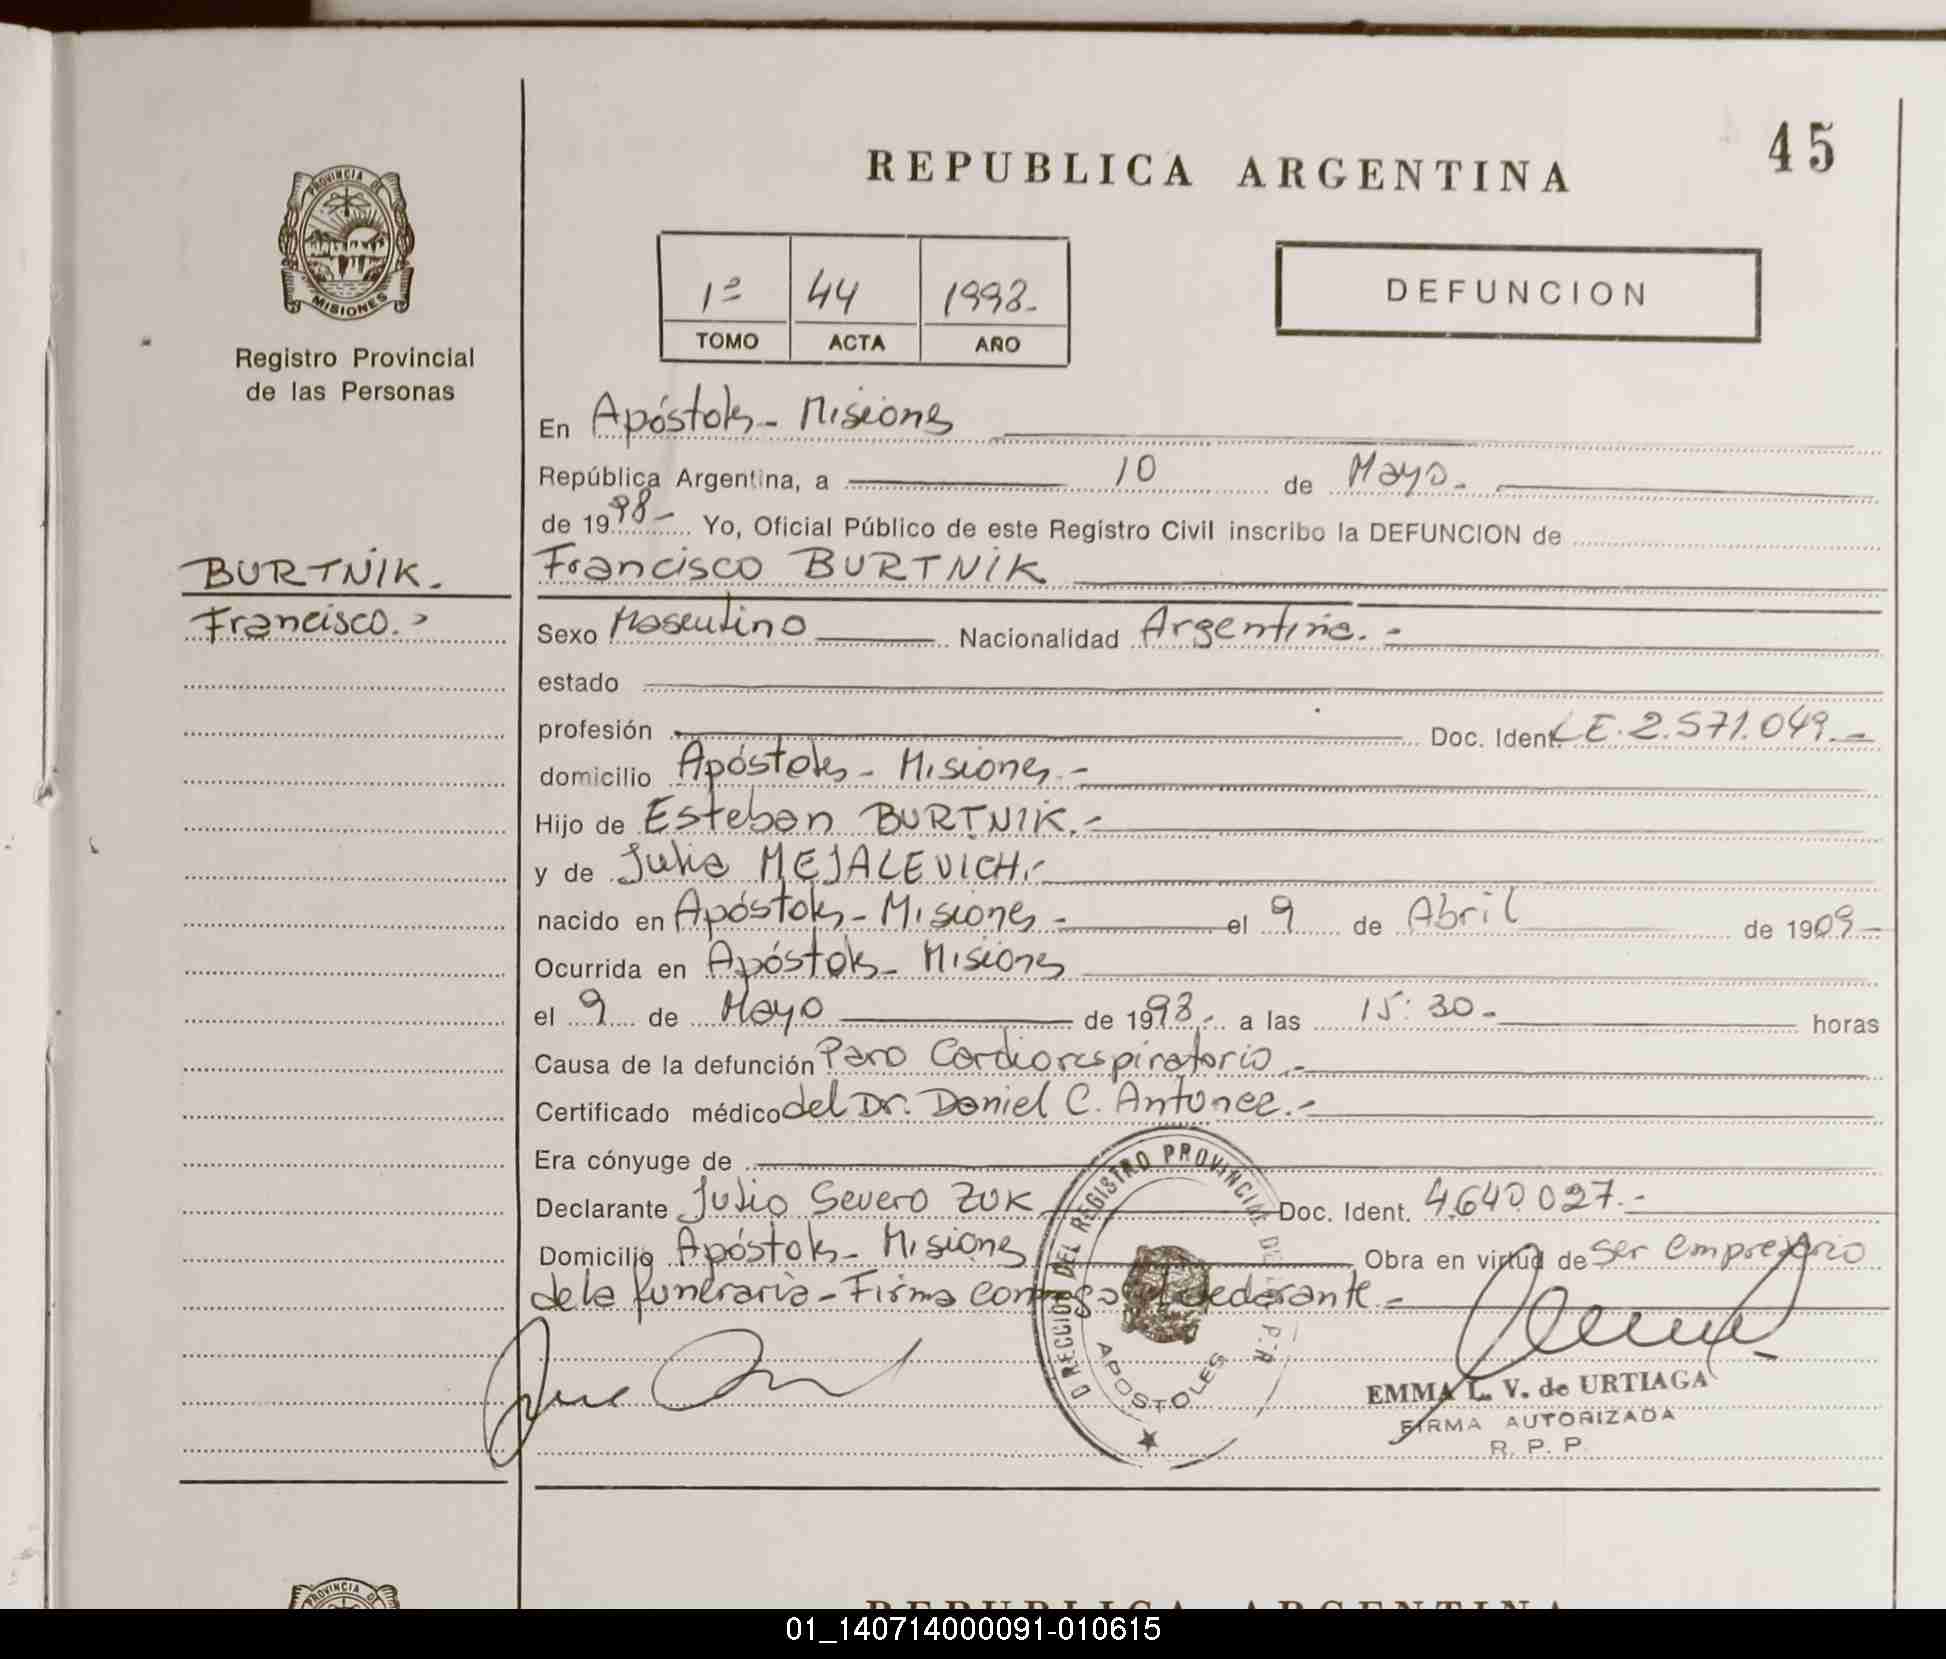 45
REPUBLICA ARGENTINA
PROVINCIA DE
MISIONES
Registro Provincial
de las Personas
1º 44 1998.-
TOMO ACTA AÑO
DEFUNCION
En Apóstoles - Misiones
República Argentina, a 10 de Mayo.-
de 1998- Yo, Oficial Público de este Registro Civil inscribo la DEFUNCION de
BURTNIK.
Francisco BURTNIK
Francisco.-
Sexo Masculino Nacionalidad Argentina.-
estado
profesión Doc. Ident. L.E. 2.571.049.-
domicilio Apóstoles - Misiones.-
Hijo de Esteban BURTNIK.-
y de Julia MEJALEVICH.-
nacido en Apóstoles - Misiones - el 9 de Abril de 1909-
Ocurrida en Apóstoles - Misiones
el 9 de Mayo de 1998.- a las 15:30.- horas
Causa de la defunción Paro Cardiorespiratorio.-
Certificado médico del Dr. Daniel C. Antunez.-
Era cónyuge de
Declarante Julio Severo ZUK Doc. Ident. 4.640.027.-
Domicilio Apóstoles - Misiones Obra en virtud de ser empresario
de la funeraria - Firma conmigo el declarante.-
DIRECCION DEL REGISTRO PROVINCIAL DE LAS P.R
APOSTOLES
EMMA L. V. de URTIAGA
FIRMA AUTORIZADA
R. P. P.
PROVINCIA DE
REPUBLICA ARGENTINA
01_140714000091-010615